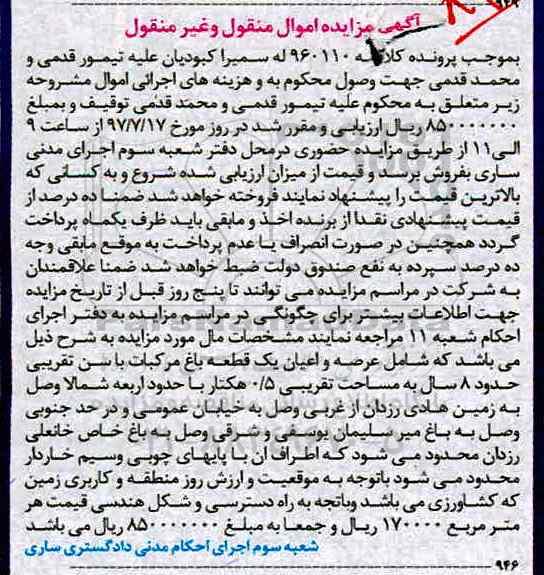 ۹۴۹
آگهی مزایده اموال منقول وغیر منقول
بموجب پرونده کلاسه ۹۶۰۱۱۰ له سمیرا کبودیان علیه تیمور قدمی و
محمد قدمی جهت وصول محکوم به و هزینه های اجرائی اموال مشروحه
زیر متعلق به محکوم علیه تیمور قدمی و محمد قدمی توقیف و بمبلغ
۸۵۰۰۰۰۰۰۰ ریال ارزیابی و مقرر شد در روز مورخ ۹۷/۷/۱۷ از ساعت ۹
الی۱۱ از طریق مزایده حضوری درمحل دفتر شعبه سوم اجرای مدنی
ساری بفروش برسد و قیمت از میزان ارزیابی شده شروع و به کسانی که
بالاترین قیمت را پیشنهاد نمایند فروخته خواهد شد ضمنا ده درصد از
قیمت پیشنهادی نقدا از برنده اخذ و مابقی باید ظرف یکماه پرداخت
گردد همچنین در صورت انصراف یا عدم پرداخت به موقع مابقی وجه
ده درصد سپرده به نفع صندوق دولت ضبط خواهد شد ضمنا علاقمندان
به شرکت در مراسم مزایده می توانند تا پنج روز قبل از تاریخ مزایده
جهت اطلاعات بیشتر برای چگونگی در مراسم مزایده به دفتر اجرای
احکام شعبه ۱۱ مراجعه نمایند مشخصات مال مورد مزایده به شرح ذیل
می باشد که شامل عرصه و اعیان یک قطعه باغ مرکبات با سن تقریبی
حدود ۸ سال به مساحت تقریبی ۰/۵ هکتار با حدود اربعه شمالا وصل
به زمین هادی رزدان از غربی وصل به خیابان عمومی و در حد جنوبی
وصل به باغ میر سلیمان یوسفی و شرقی وصل به باغ خاص خانعلی
رزدان محدود می شود که اطراف ان با پایهای چوبی وسیم خاردار
محدود می شود باتوجه به موقعیت و ارزش روز منطقه و کاربری زمین
که کشاورزی می باشد وباتجه به راه دسترسی و شکل هندسی قیمت هر
متر مربع ۱۷۰۰۰۰ ریال و جمعا به مبلغ ۸۵۰۰۰۰۰۰۰ ریال می باشد
شعبه سوم اجرای احکام مدنی دادگستری ساری
۹۴۶